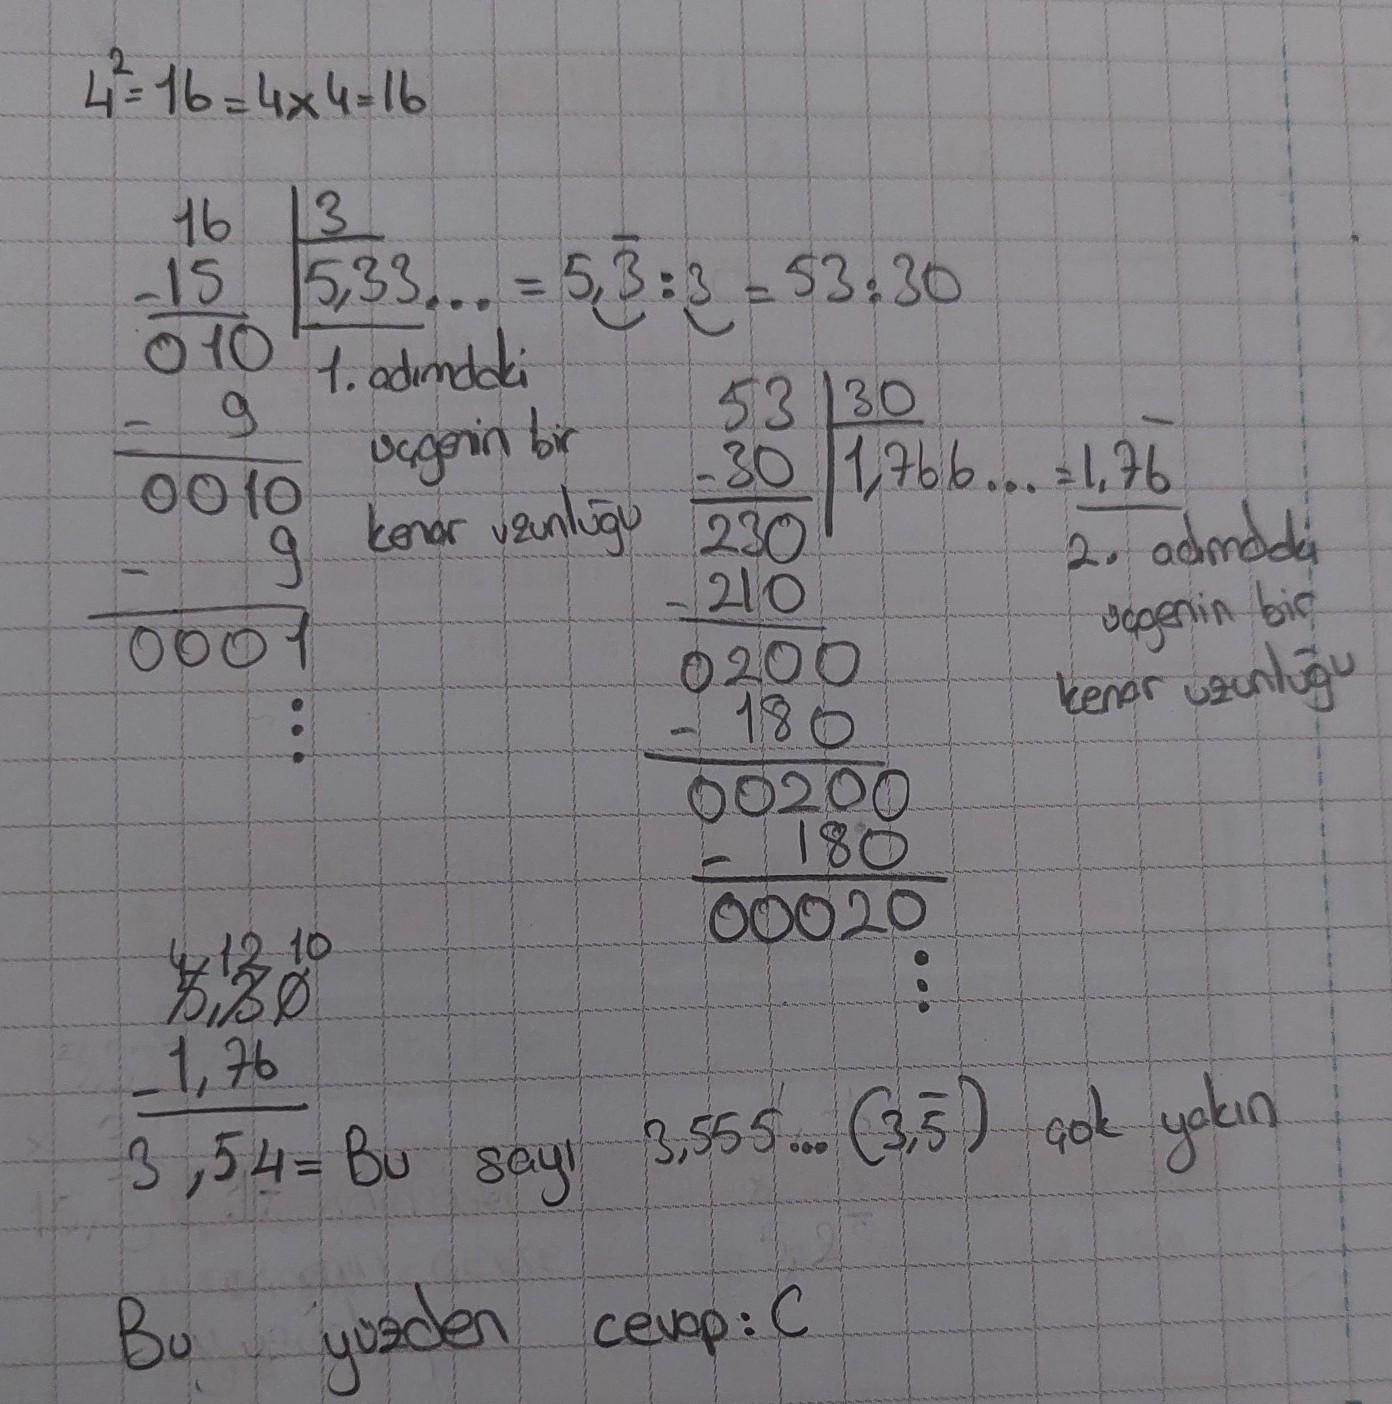 4²=16=4x4=16
16 | 3
-15 | 5,33... = 5,3̅ : 3 = 53:30
010
1. adımdaki
üçgenin bir
kenar uzunluğu
- 9
0010
- 9
0001
⋮
53 | 30
-30 | 1,766... = 1,76̅
230
-210
0200
- 180
00200
- 180
00020
⋮
2. adımdaki
üçgenin bir
kenar uzunluğu
4 12 10
5,30
-1,76
3,54= Bu sayı 3,555... (3,5̅) çok yakın
Bu yüzden cevap: C